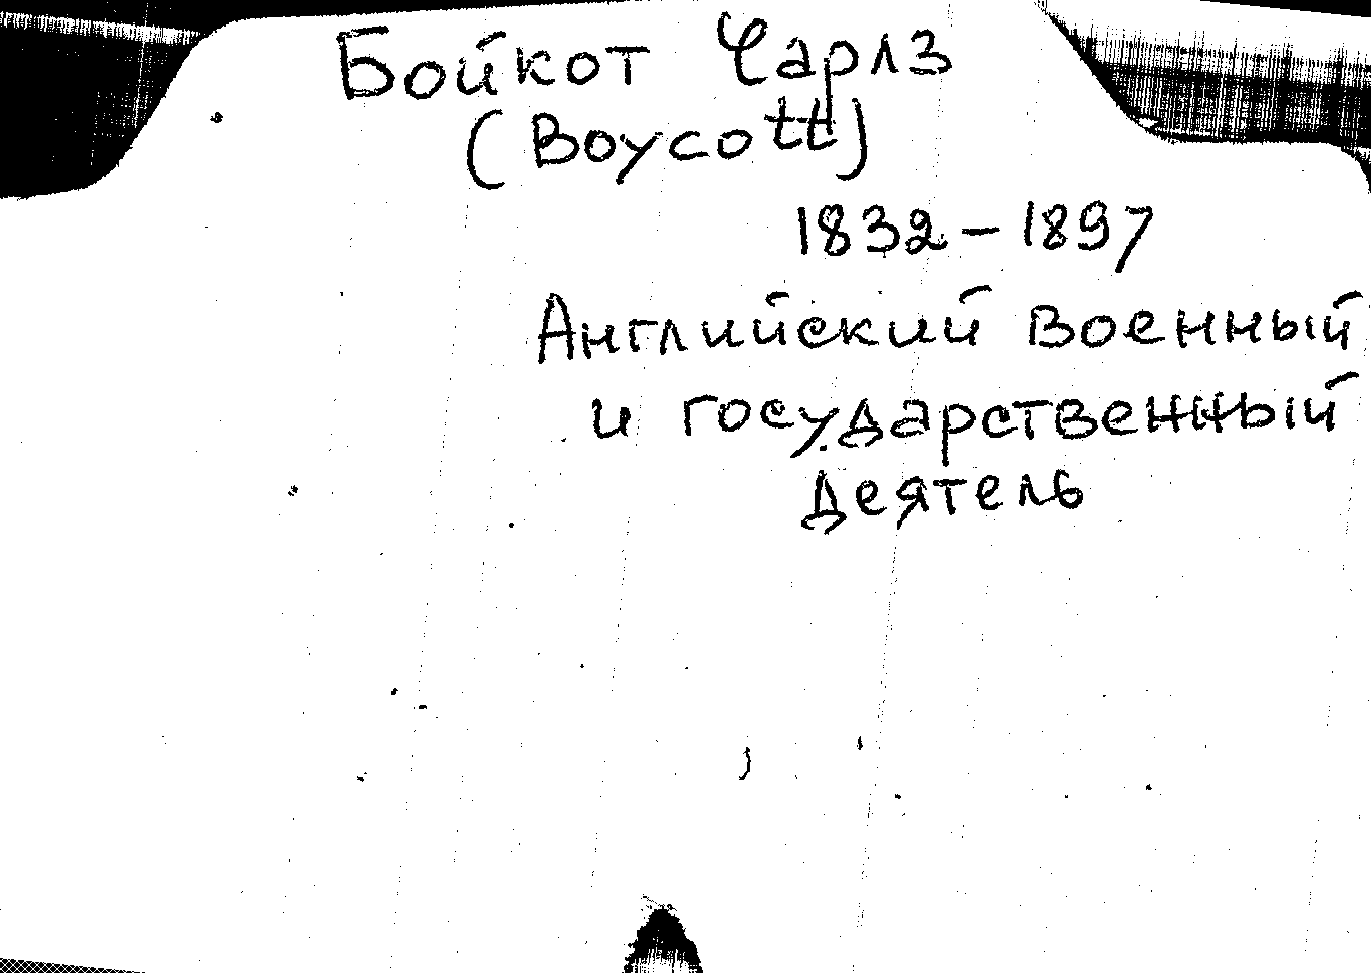 Бойкот Чарлз
(Boycott)
1832-1897
Английский военный
и государственный
деятель